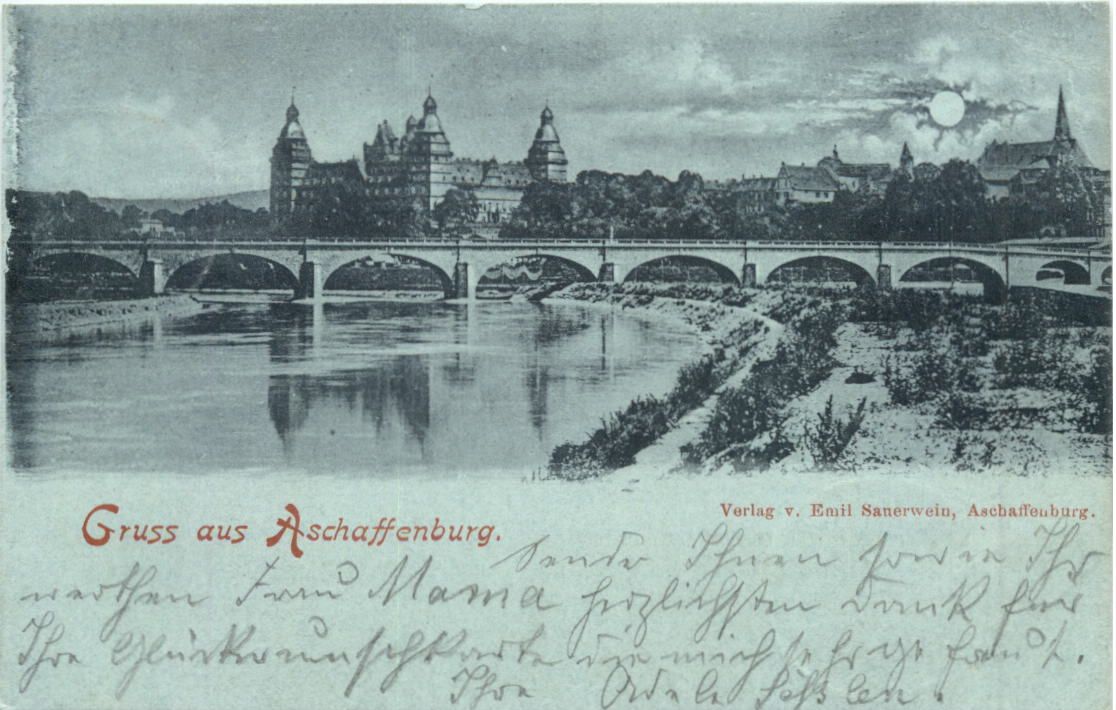 Gruss aus Aschaffenburg.
Verlag v. Emil Sauerwein, Aschaffenburg.
Sende Ihnen sowie Ihr
werthen Frau Mama herzlichsten Dank für
Ihre Glückwunschkarte die mich sehr gefreut.
Ihre Adele